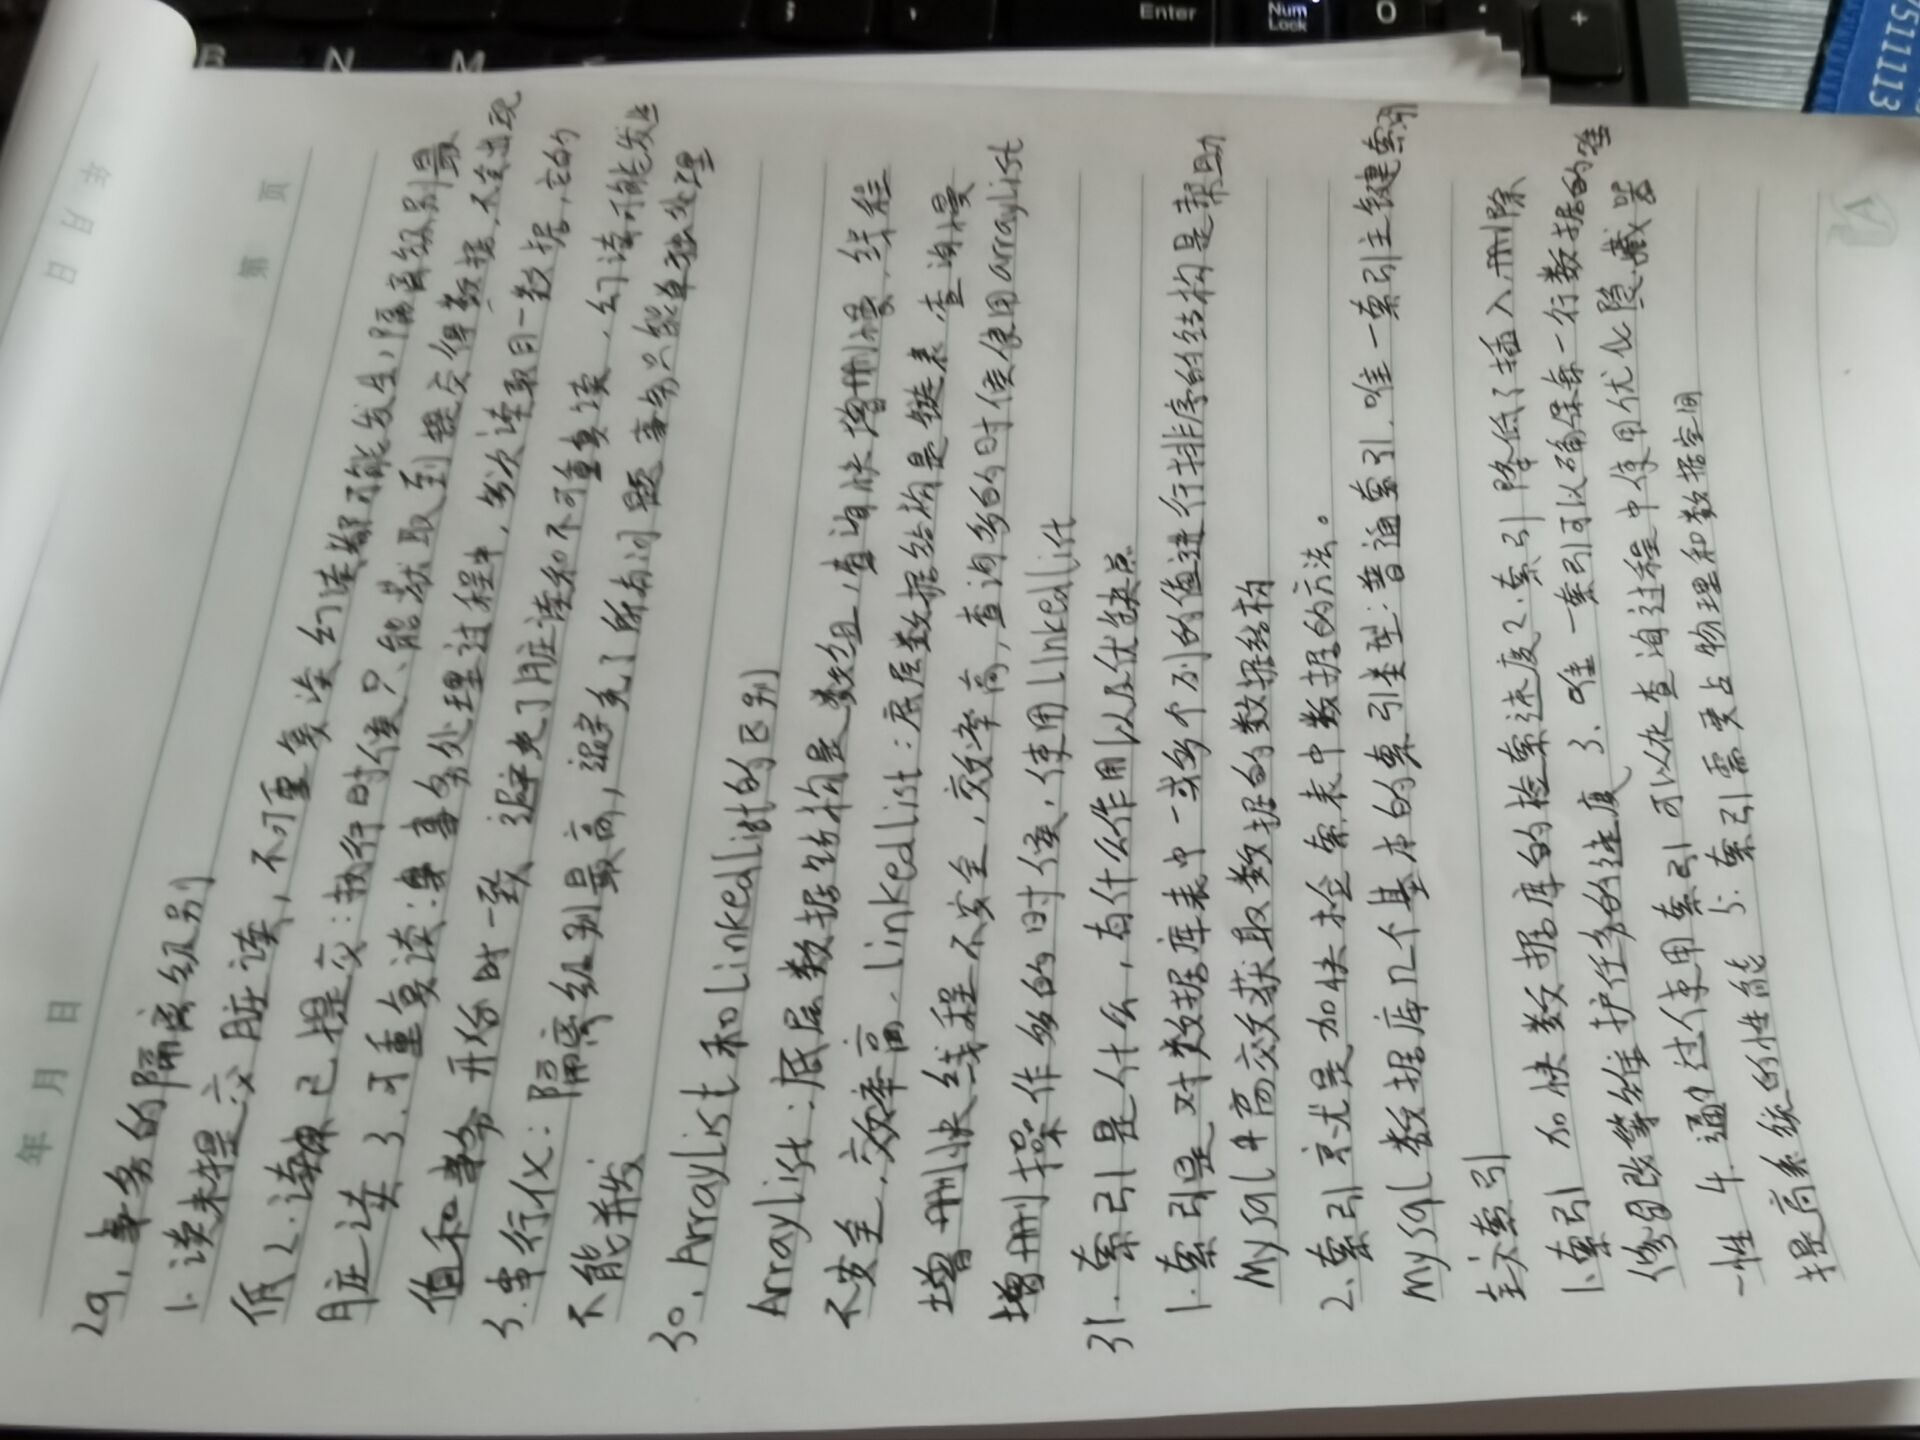 年 月 日
年 月 日
第 页
29、事务的隔离级别
1. 读未提交 脏读，不可重复读 幻读都可能发生，隔离级别最
低 2. 读 已提交：执行时候只能获取到提交得数据，不会出现
脏读 3. 可重复读：事务处理过程中，多次读取同一数据，它的
值和事务开始时一致 避免了脏读和不可重复读，幻读可能发生
3. 串行化：隔离级别最高，避免了所有问题 事务只能单独处理
不能并发
30、Arraylist和Linkedlist的区别
Arraylist：底层数据结构是数组，查询快增删慢，线程
不安全，效率高、linkedlist：底层数据结构是链表，查询慢
增删快 线程不安全，效率高，查询多的时候使用arraylist
增删操作多的时候，使用linkedlist
31. 索引是什么，有什么作用以及优缺点
1. 索引是 对数据库表中一或多个列的值进行排序的结构是帮助
MySql 高效获取数据的数据结构
2. 索引就是加快检索表中数据的方法。
MySql数据库几个基本的索引类型：普通索引、唯一索引主键索引
全文索引
1. 索引 加快数据库的检索速度 2. 索引降低了插入、删除
修改等维护任务的速度 3. 唯一索引可以确保每一行数据的唯
一性 4. 通过使用索引可以在查询过程中使用优化隐藏器
提高系统的性能 5. 索引需要占物理和数据空间
Enter
Num
Lock
0
+
B
N
M